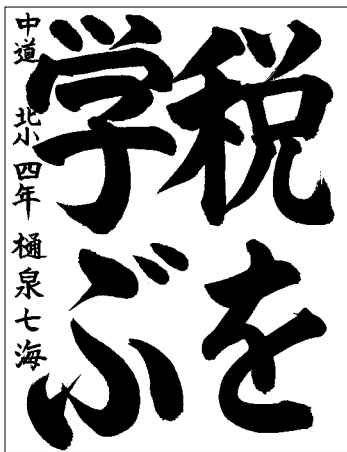 税を
学ぶ
中道北小四年 樋泉七海